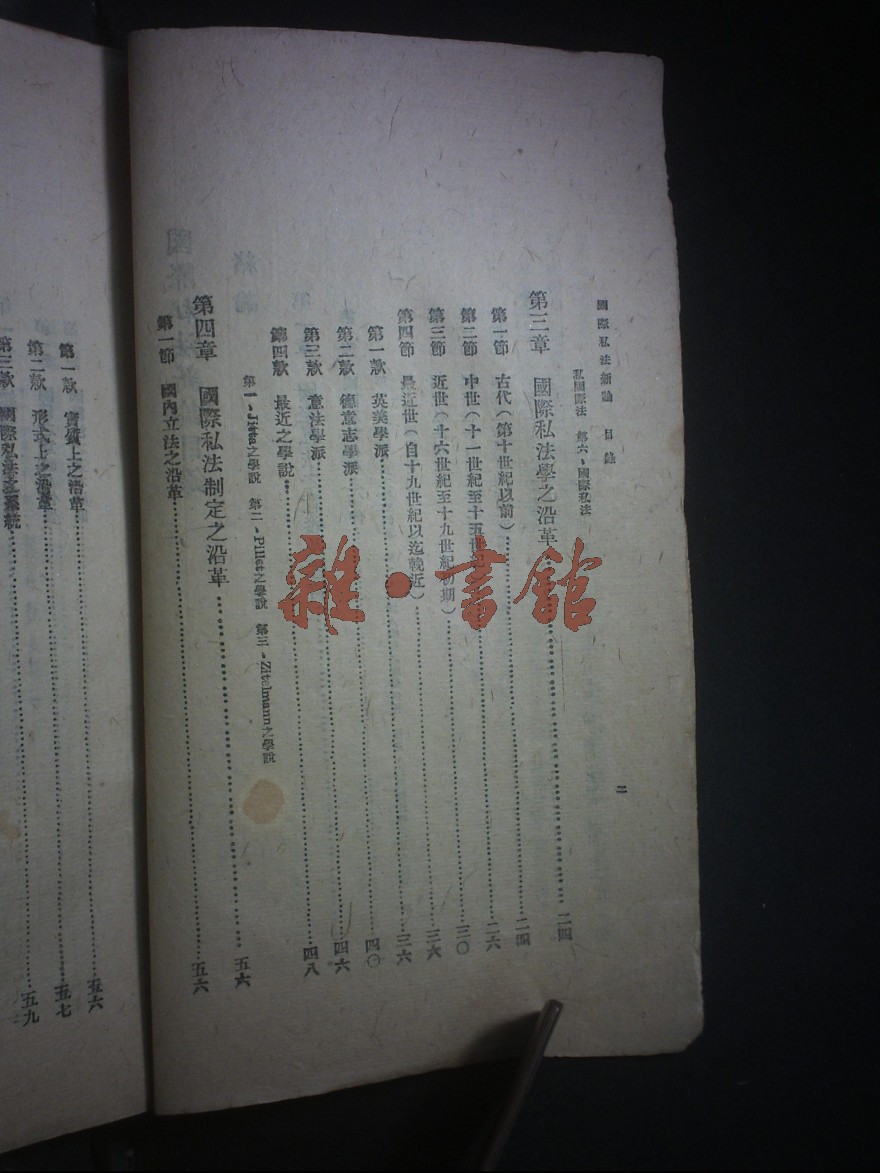 國際私法新論 目錄
私國際法 第六、國際私法
第三章 國際私法學之沿革 二四
第一節 古代(第十世紀以前) 二四
第二節 中世(十一世紀至十五世 二六
第三節 近世(十六世紀至十九世紀初期) 三〇
第四節 最近世(自十九世紀以迄輓近) 三六
第一款 英美學派 三六
第二款 德意志學派 四〇
第三款 意法學派 四六
第四款 最近之學說 四八
第一、Jitta之學說 第二、Pillet之學說 第三、Zitelmann之學說
第四章 國際私法制定之沿革 五六
第一節 國內立法之沿革 五六
二
第一款 實質上之沿革 五六
第二款 形式上之沿革 五七
第三款 國際私法之系統 五九
雜·書館